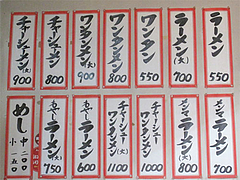 ラーメン 550
ラーメン(大) 700
ワンタン 550
ワンタンメン 800
ワンタンメン(大) 900
チャーシューメン 800
チャーシューメン(大) 900
メンマラーメン 700
メンマラーメン(大) 800
チャーシューワンタンメン 1000
チャーシューワンタンメン(大) 1100
もやしラーメン 600
もやしラーメン(大) 750
めし 中二〇〇
小一五〇